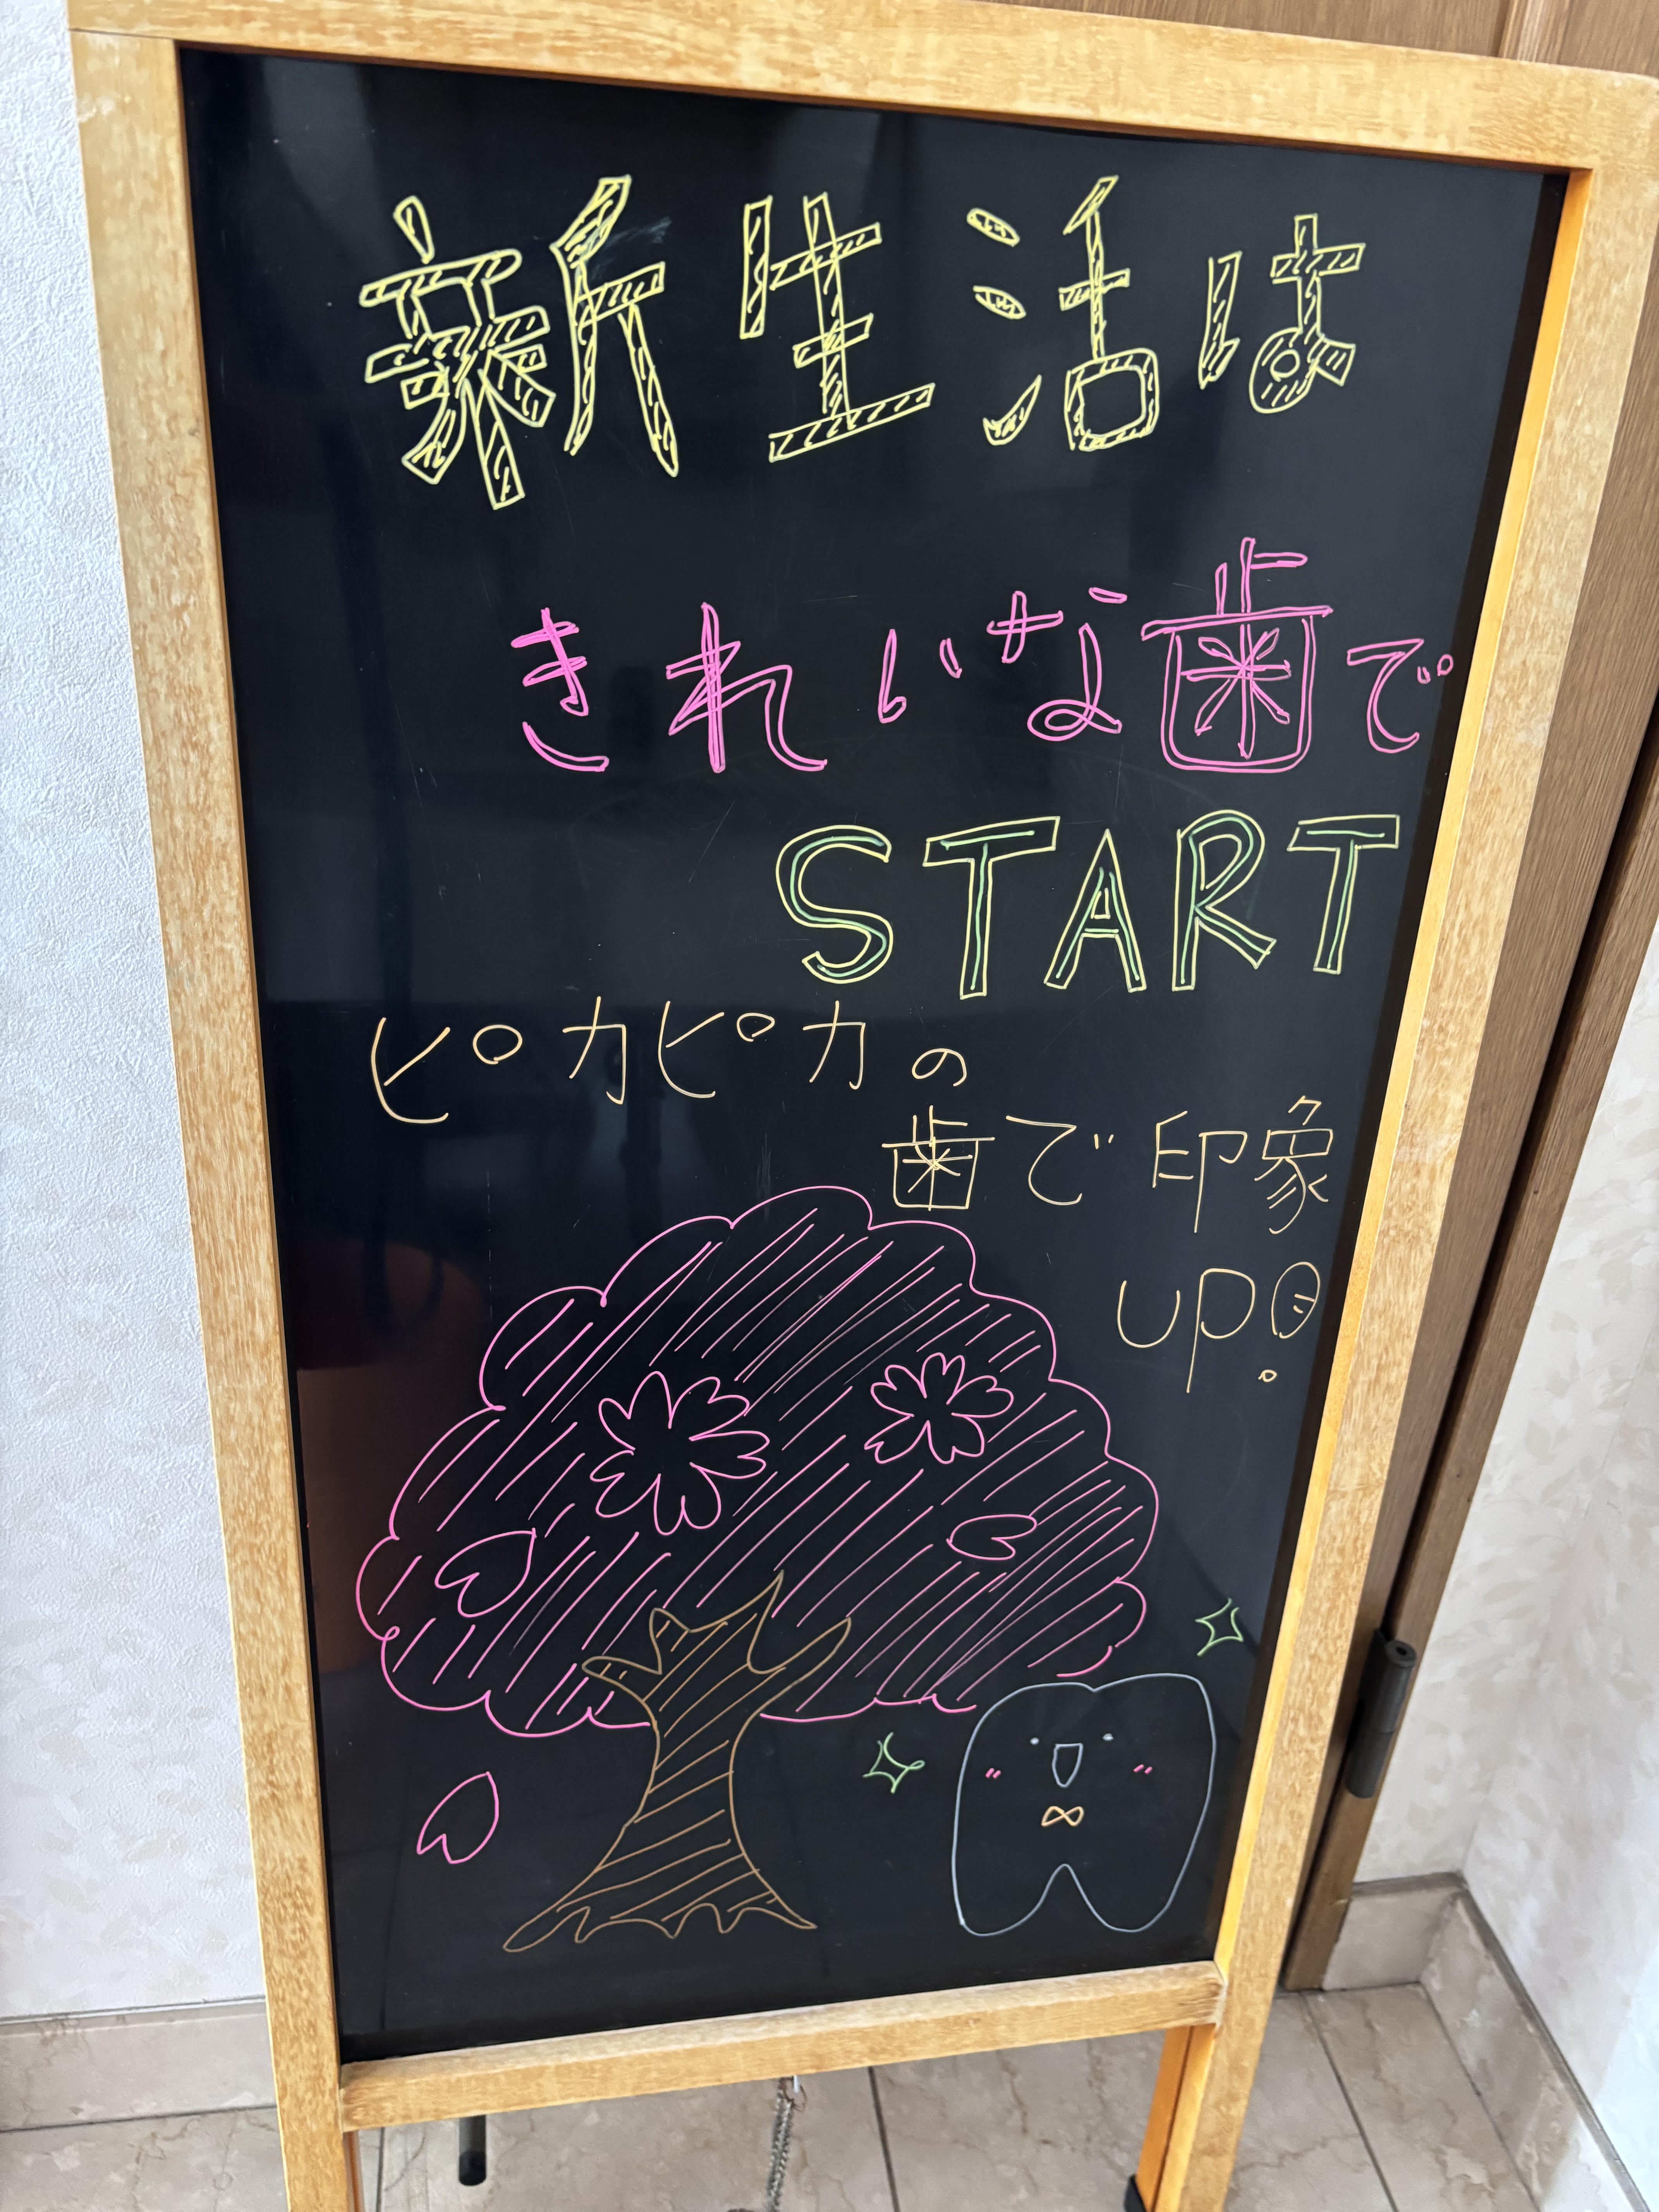 新生活は
きれいな歯で
START
ピカピカの
歯で印象
UP!